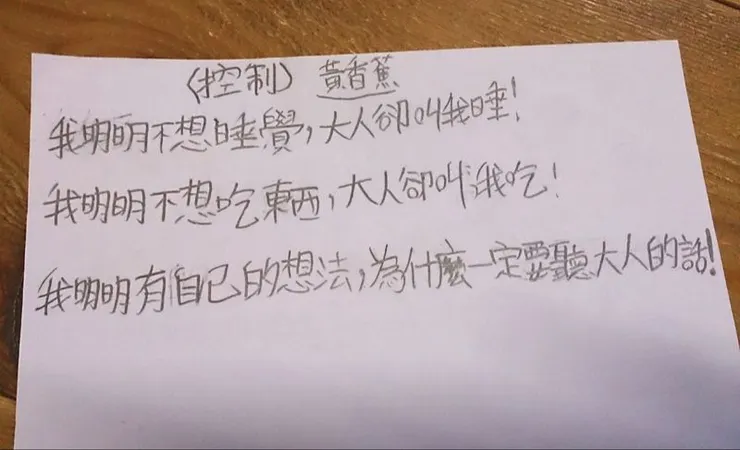 〈控制〉 黃香蕉
我明明不想睡覺,大人卻叫我睡!
我明明不想吃東西,大人卻叫我吃!
我明明有自己的想法,為什麼一定要聽大人的話!